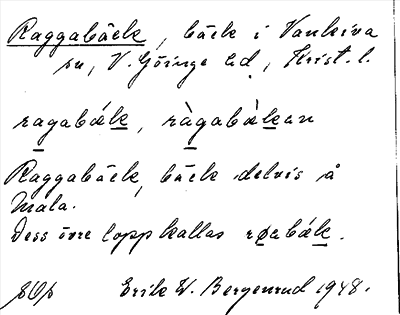 Raggabäck, bäck i Vankiva
sn, V. Göinge hd, Krist. l.
ragabák, ràgabàkan
Raggabäck, bäck delvis å
Mala.
Dess övre lopp kallas røabák.
Erik W. Bergenrud 1948.